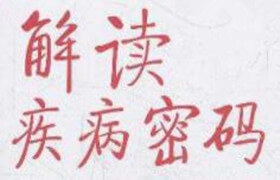 解读
疾病密码